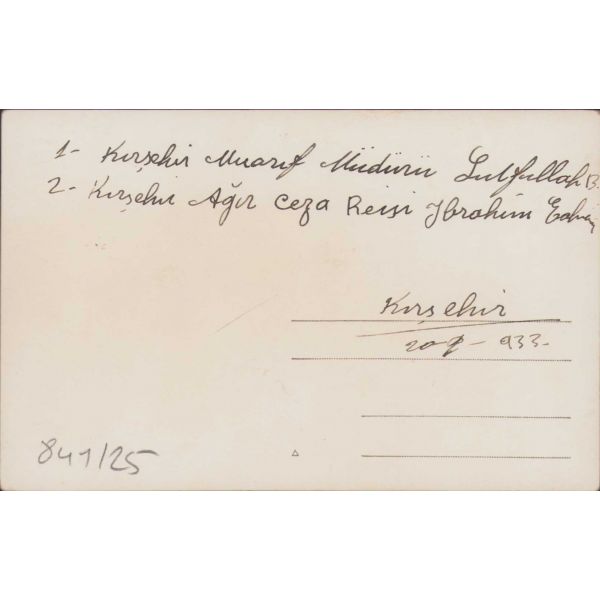 1- Kırşehir Muarıf Müdürü Lutfullah B.
2- Kırşehir Ağır Ceza Reisi İbrahim
Kırşehir
933-
841/25